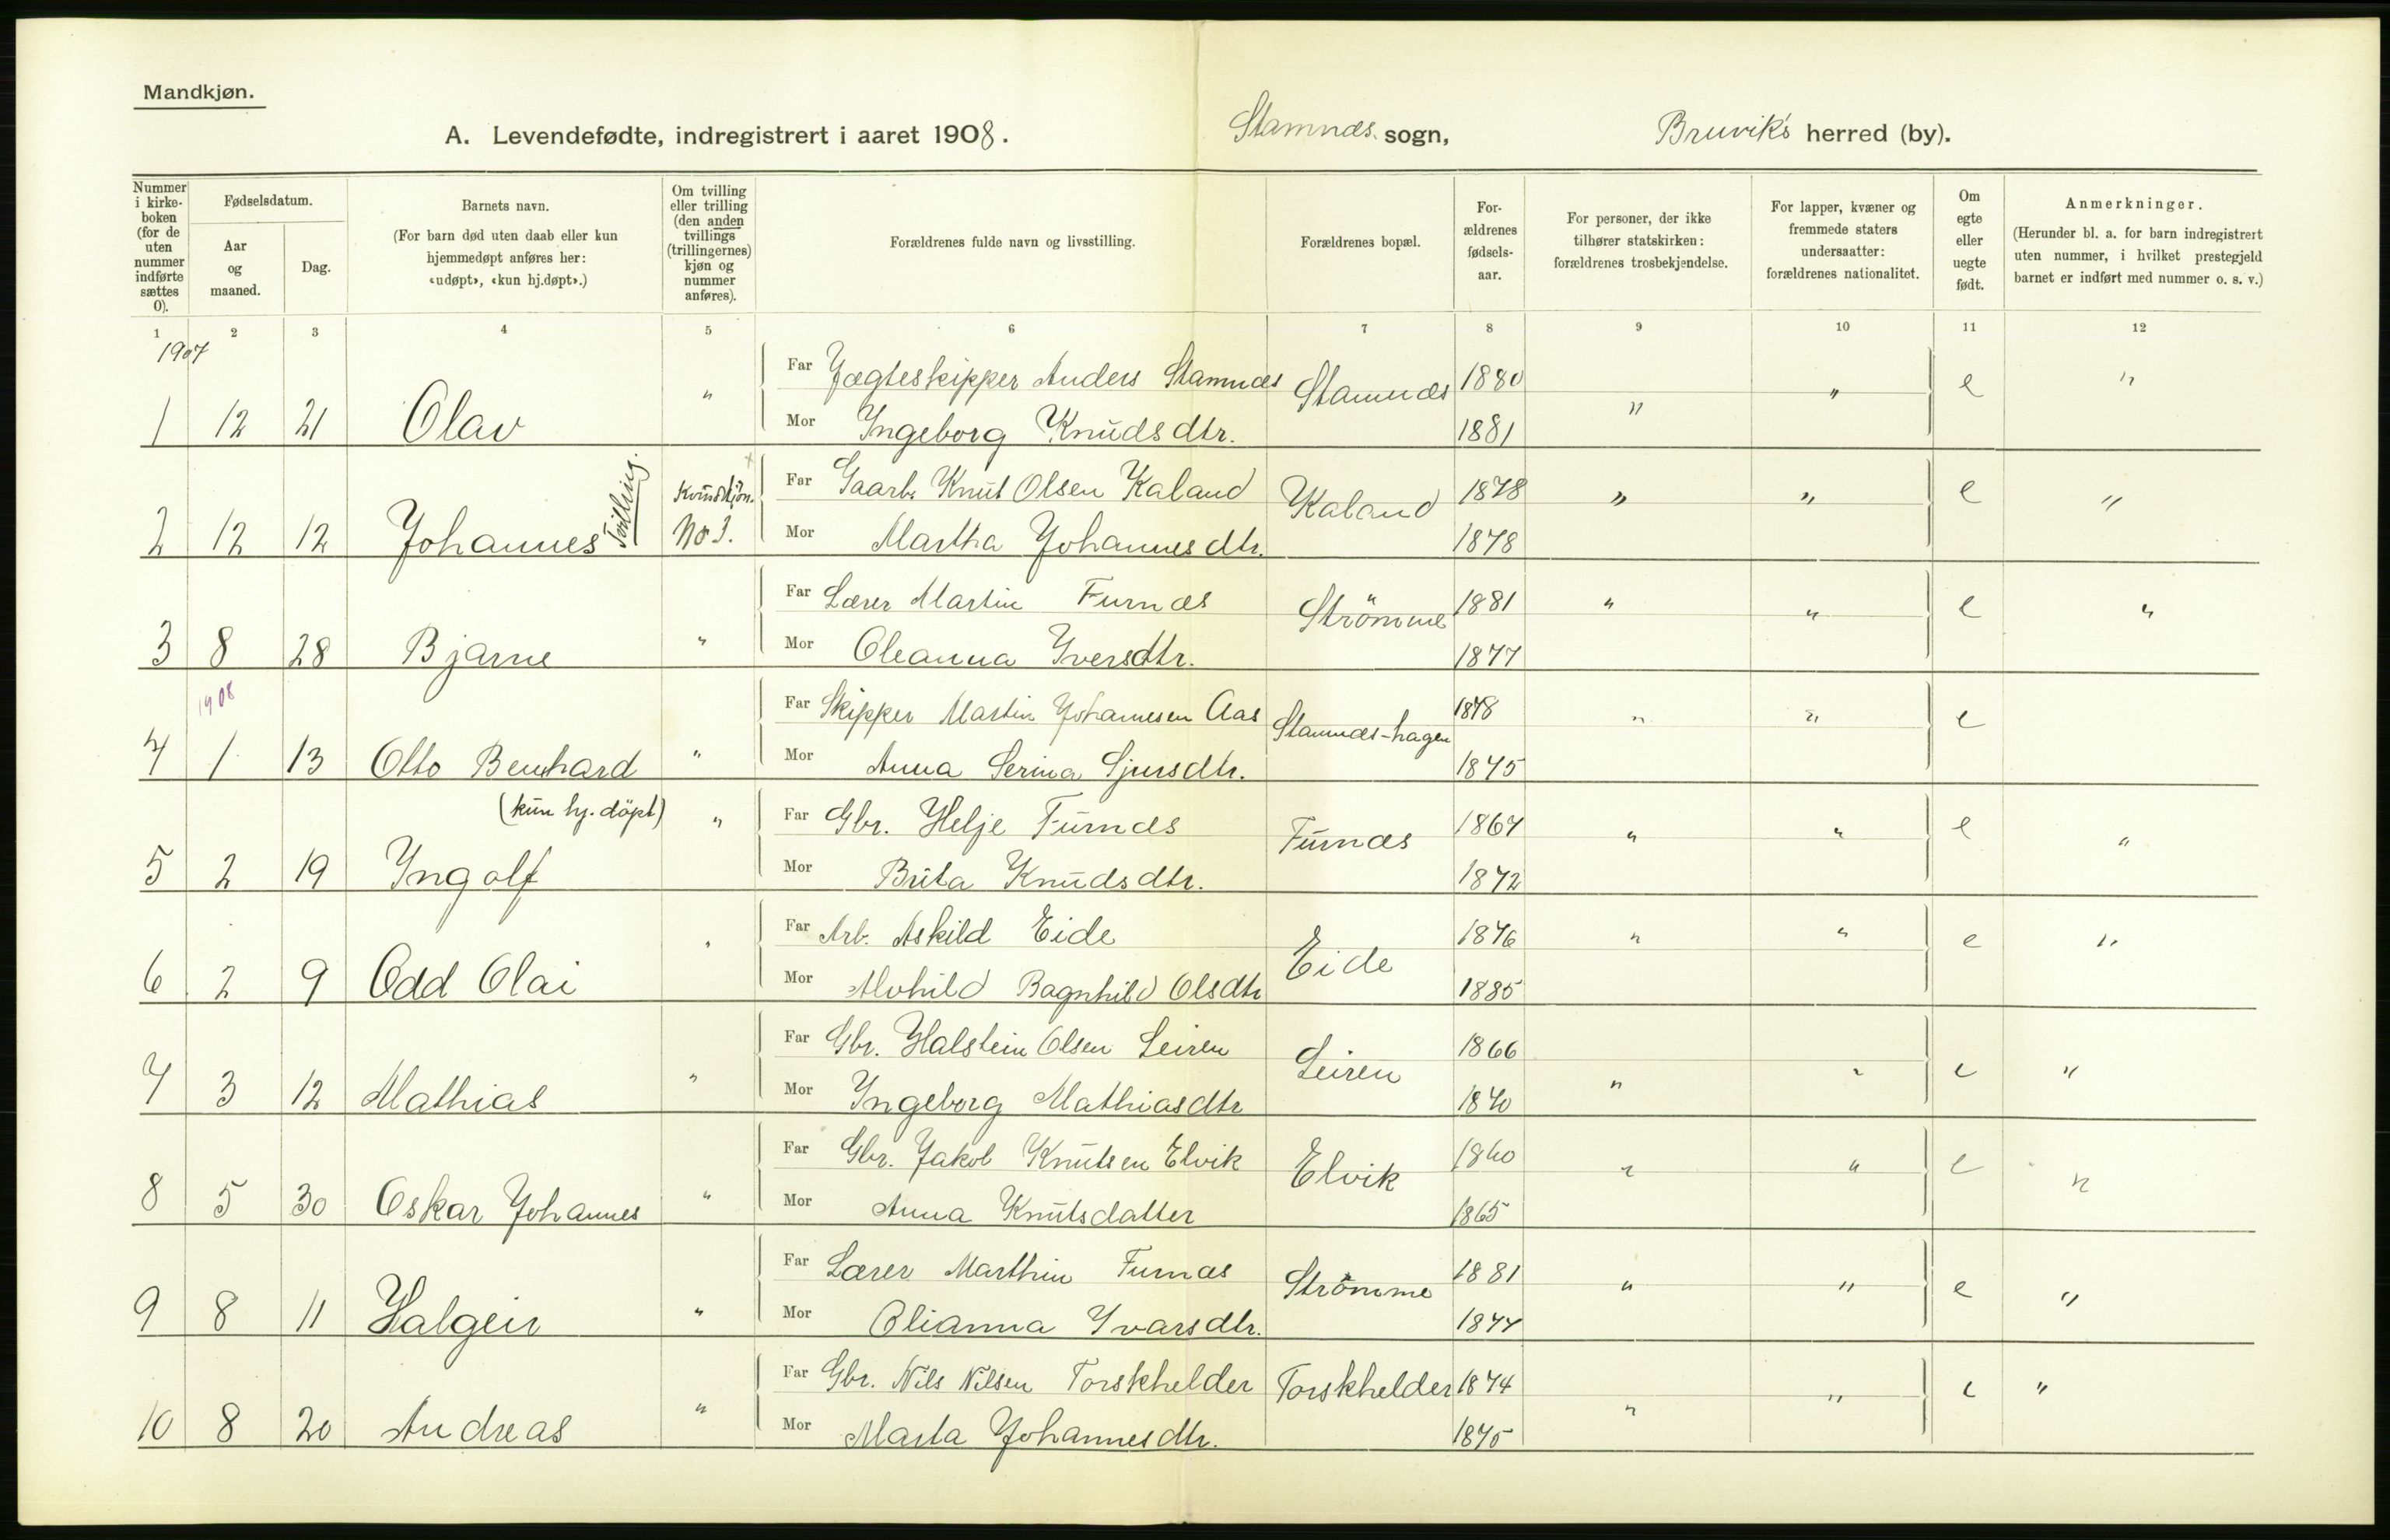 Mandkjøn.
A. Levendefødte, indregistrert i aaret 1908. Stamnæs sogn, Bruvik's herred (by).
Nummer i kirke-boken (for de uten nummer indførte sættes 0).
Fødselsdatum.
Aar og maaned.
Dag.
Barnets navn.
(For barn død uten daab eller kun hjemmedøpt anføres her: «udøpt», «kun hj.døpt».)
Om tvilling eller trilling (den anden tvillings (trillingernes) kjøn og nummer anføres).
Forældrenes fulde navn og livsstilling.
Forældrenes bopæl.
For-ældrenes fødsels-aar.
For personer, der ikke tilhører statskirken: forældrenes trosbekjendelse.
For lapper, kvæner og fremmede staters undersaatter: forældrenes nationalitet.
Om egte eller uegte født.
Anmerkninger.
(Herunder bl. a. for barn indregistrert uten nummer, i hvilket prestegjeld barnet er indført med nummer o. s. v.)
1 2 3 4 5 6 7 8 9 10 11 12
1907
Far Jægteskipper Anders Stamnæs Stamnæs 1880 e "
1 12 21 Olav " Mor Ingeborg Knudsdtr. 1881 " "
Tvilling. Kvindkjøn. Far Gaarb. Knut Olsen Kaland Kaland 1878 " " e "
2 12 12 Johannes No 1. Mor Martha Johannesdtr. 1878
Far Lærer Martin Furnæs Strömme 1881 " " e "
3 8 28 Bjarne " Mor Oleanna Iversdtr. 1877
1908
Far Skipper Martin Johannesen Aas Stamnæs-hagen 1878 " " e
4 1 13 Otto Bernhard " Mor Anna Serina Sjursdtr. 1875
(kun hj. döpt) " Far Gbr. Helje Furnæs Furnæs 1867 " " e "
5 2 19 Ingolf Mor Brita Knudsdtr. 1872
Far Arb. Askild Eide Eide 1876 " " e "
6 2 9 Odd Olai " Mor Alvhild Ragnhild Olsdtr 1885
Far Gbr. Halstein Olsen Leiren Leiren 1866 " " e "
7 3 12 Mathias " Mor Ingeborg Mathiasdtr 1870
Far Gbr. Jakob Knutsen Elvik Elvik 1860 " " e "
8 5 30 Oskar Johannes " Mor Anna Knutsdatter 1865
Far Lærer Marthin Furnæs Strömme 1881 " " e "
9 8 11 Halgeir " Mor Olianna Ivarsdtr. 1877
Far Gbr. Nils Nilsen Torskhelder Torskhelder 1874 " " e "
10 8 20 Andreas " Mor Marta Johannesdtr. 1875